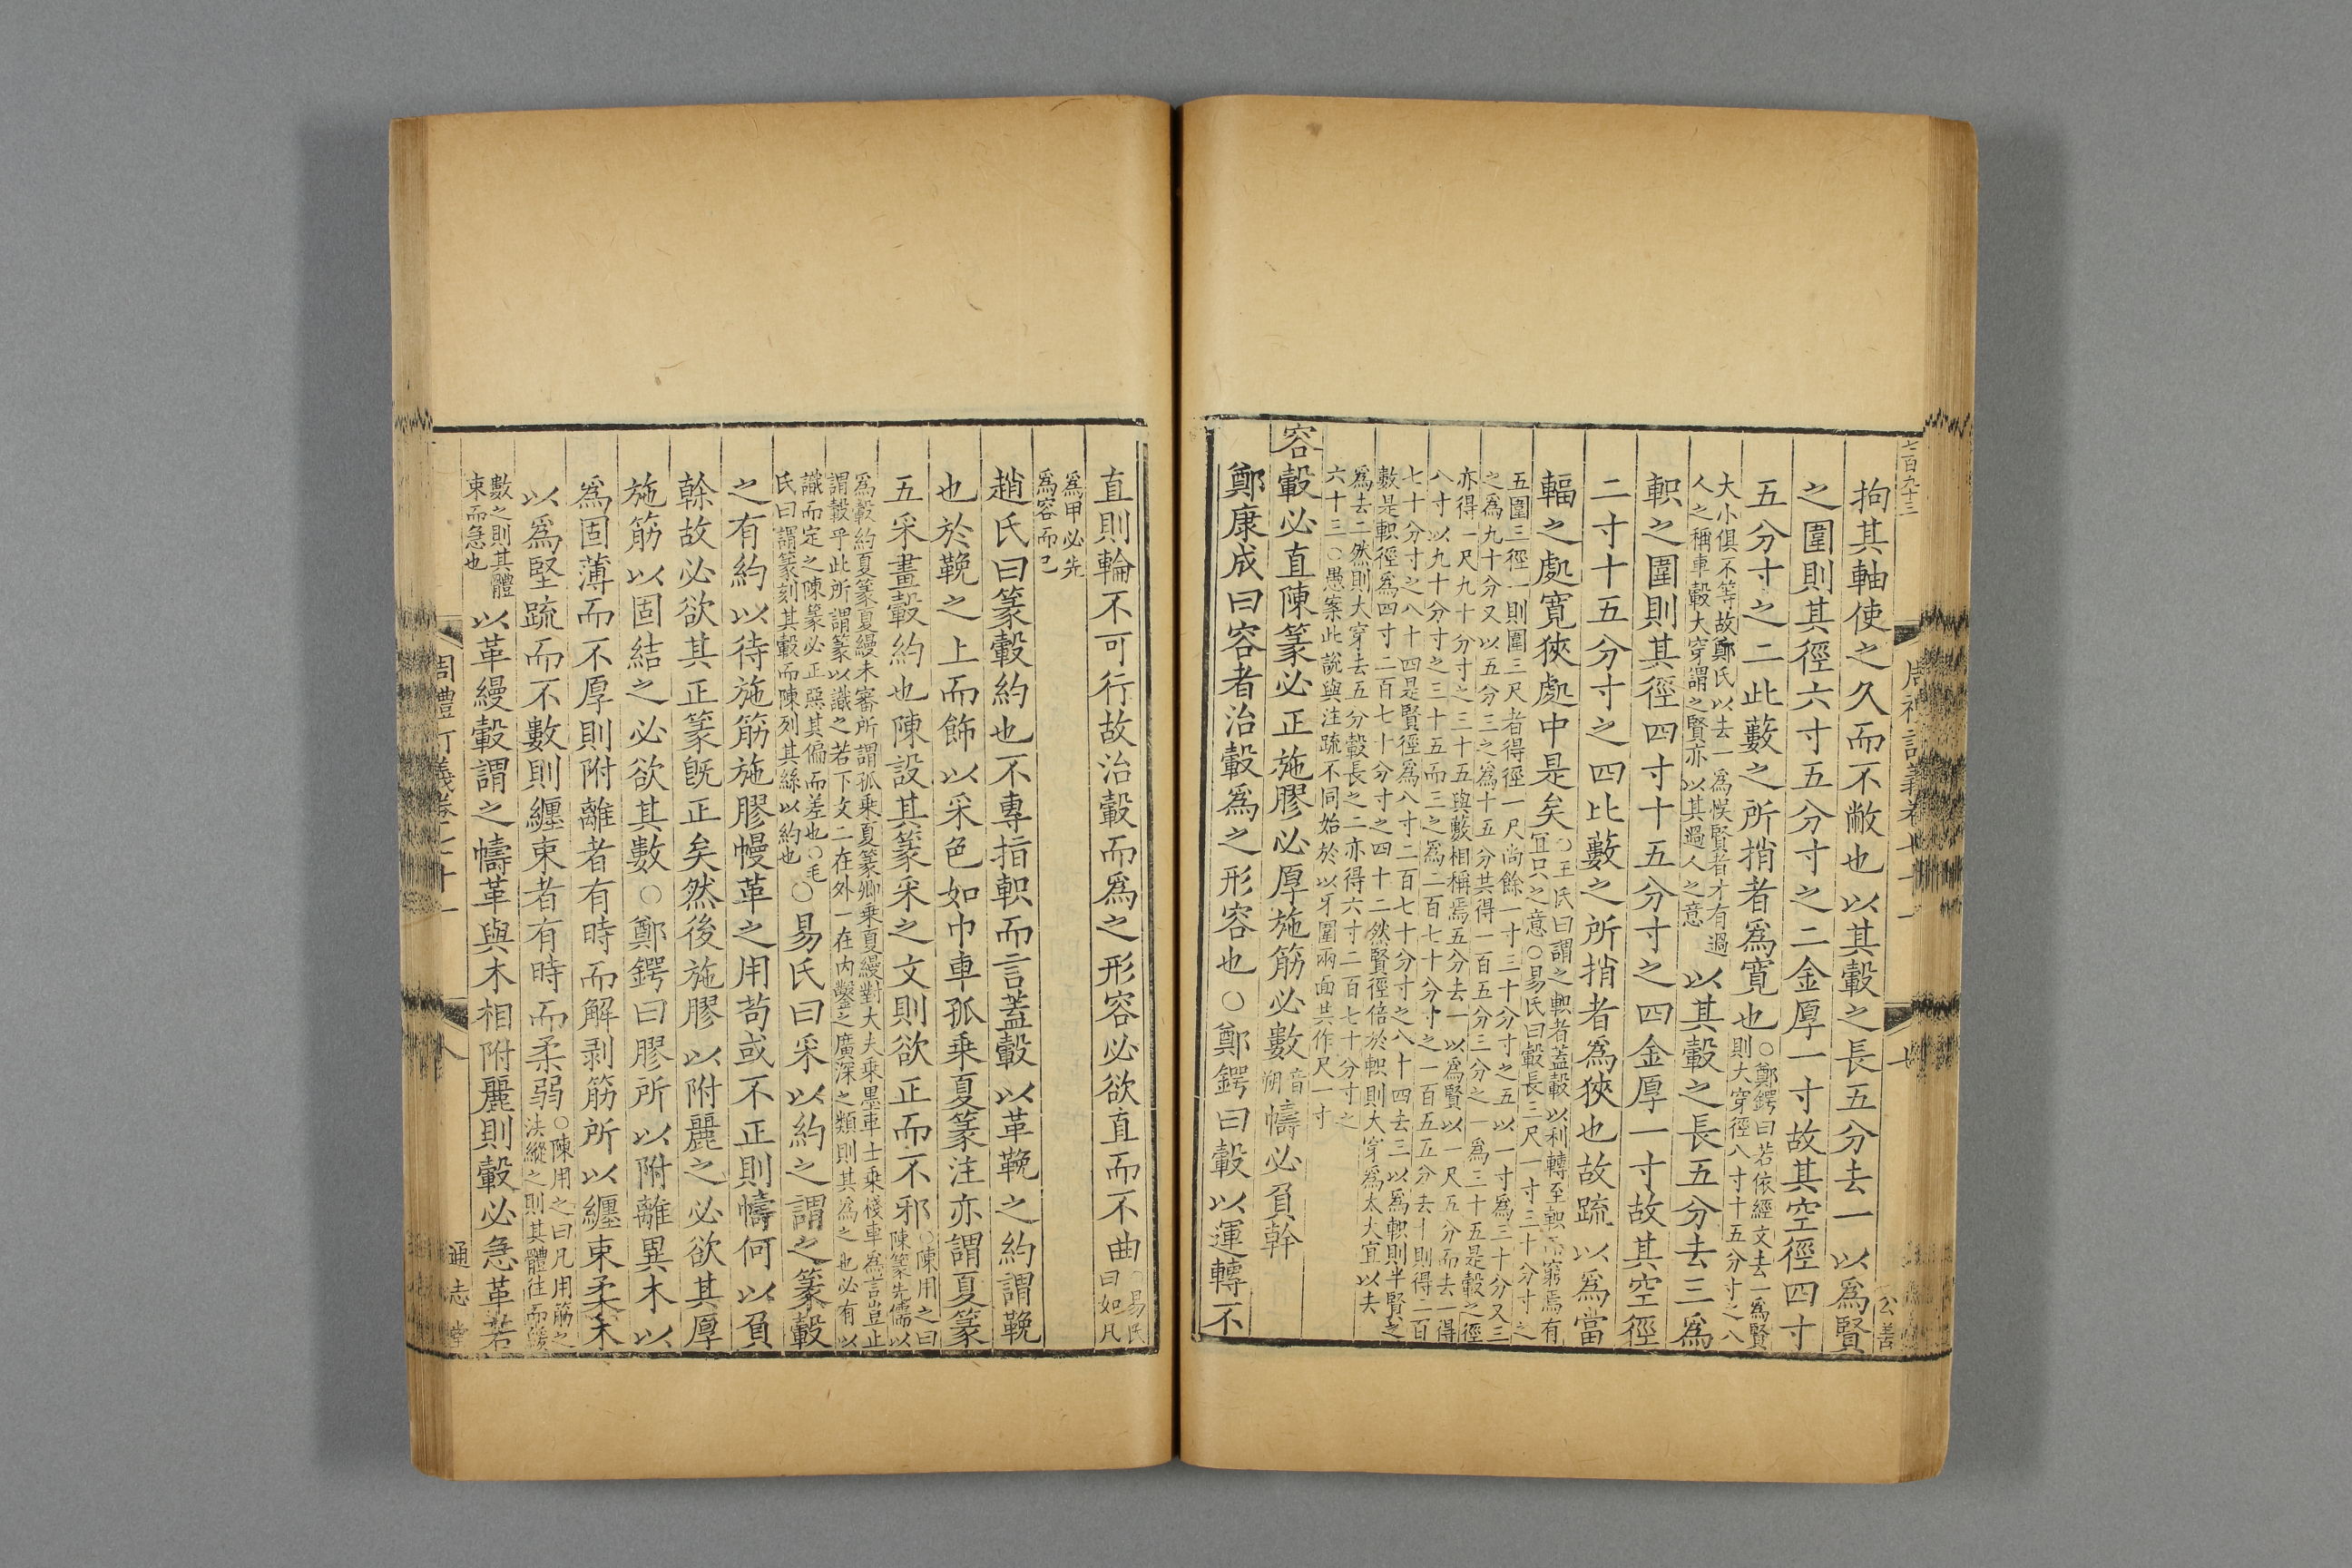 七百九十三
公善
拘其軸使之久而不敝也以其轂之長五分去一以爲賢
之圍則其徑六寸五分寸之二金厚一寸故其空徑四寸
五分寸之二此藪之所捎者爲寬也○鄭鍔曰若依經文去一爲賢
則大穿徑八寸十五分寸之八
大小俱不等故鄭氏以去一爲悞賢者才有過
人之稱車轂大穿謂之賢亦以其過人之意以其轂之長五分去三爲
軹之圍則其徑四寸十五分寸之四金厚一寸故其空徑
二寸十五分寸之四比藪之所捎者爲狹也故疏以爲當
輻之處寛狹處中是矣○王氏曰謂之軹者蓋轂以利轉至軹而窮焉有
宜只之意○易氏曰轂長三尺一寸三十分寸之
五圍三徑一則圍三尺者得徑一尺尚餘一寸三十分寸之五以一寸爲三十分又三
之爲九十分又以五分三之爲十五分其得一百五分三分之一爲三十五是轂之徑
亦得一尺九十分寸之三十五與藪相稱焉五分去一以爲賢以一尺五分而去一得
八寸以九十分寸之三十五而三之爲二百七十分寸之一百五五分去十則得二百
七十分寸之八十四是賢徑爲八寸二百七十分寸之八十四去三以爲軹則半賢之
數是軹徑爲四寸二百七十分寸之四十二然賢徑倍於軹則大穿爲太大宜以夫
爲去二然則大穿去五分轂長之二亦得六寸二百七十分寸之
六十三○愚案此說與注疏不同始於以牙圍兩面共作尺一寸
容轂必直陳篆必正施膠必厚施筋必數音
朔幬必負幹
鄭康成曰容者治轂爲之形容也○鄭鍔曰轂以運轉不
直則輪不可行故治轂而爲之形容必欲直而不曲○易氏
曰如凡
爲甲必先
爲容而已
趙氏曰篆轂約也不專指軹而言蓋轂以革鞔之約謂鞔
也於鞔之上而飾以采色如巾車孤乗夏篆注亦謂夏篆
五采畫轂約也陳設其篆采之文則欲正而不邪○陳用之曰
陳篆先儒以
爲轂約夏篆夏縵未審所謂孤乗夏篆卿乗夏縵對大夫乗墨車士乗棧車爲言豈止
謂轂乎此所謂篆以識之若下文二在外一在内鑿之廣深之類則其爲之也必有以
識而定之陳篆必正惡其偏而差也○毛
氏曰謂篆刻其轂而陳列其絲以約也○易氏曰采以約之謂之篆轂
之有約以待施筋施膠幔革之用苟或不正則幬何以負
榦故必欲其正篆既正矣然後施膠以附麗之必欲其厚
施筋以固結之必欲其數○鄭鍔曰膠所以附離異木以
爲固薄而不厚則附離者有時而解剥筋所以纏束柔木
以爲堅疏而不數則纏束者有時而柔弱○陳用之曰凡用筋之
法縱之則其體往而緩
數之則其體
束而急也以革縵轂謂之幬革與木相附麗則轂必急革若
八
通志堂